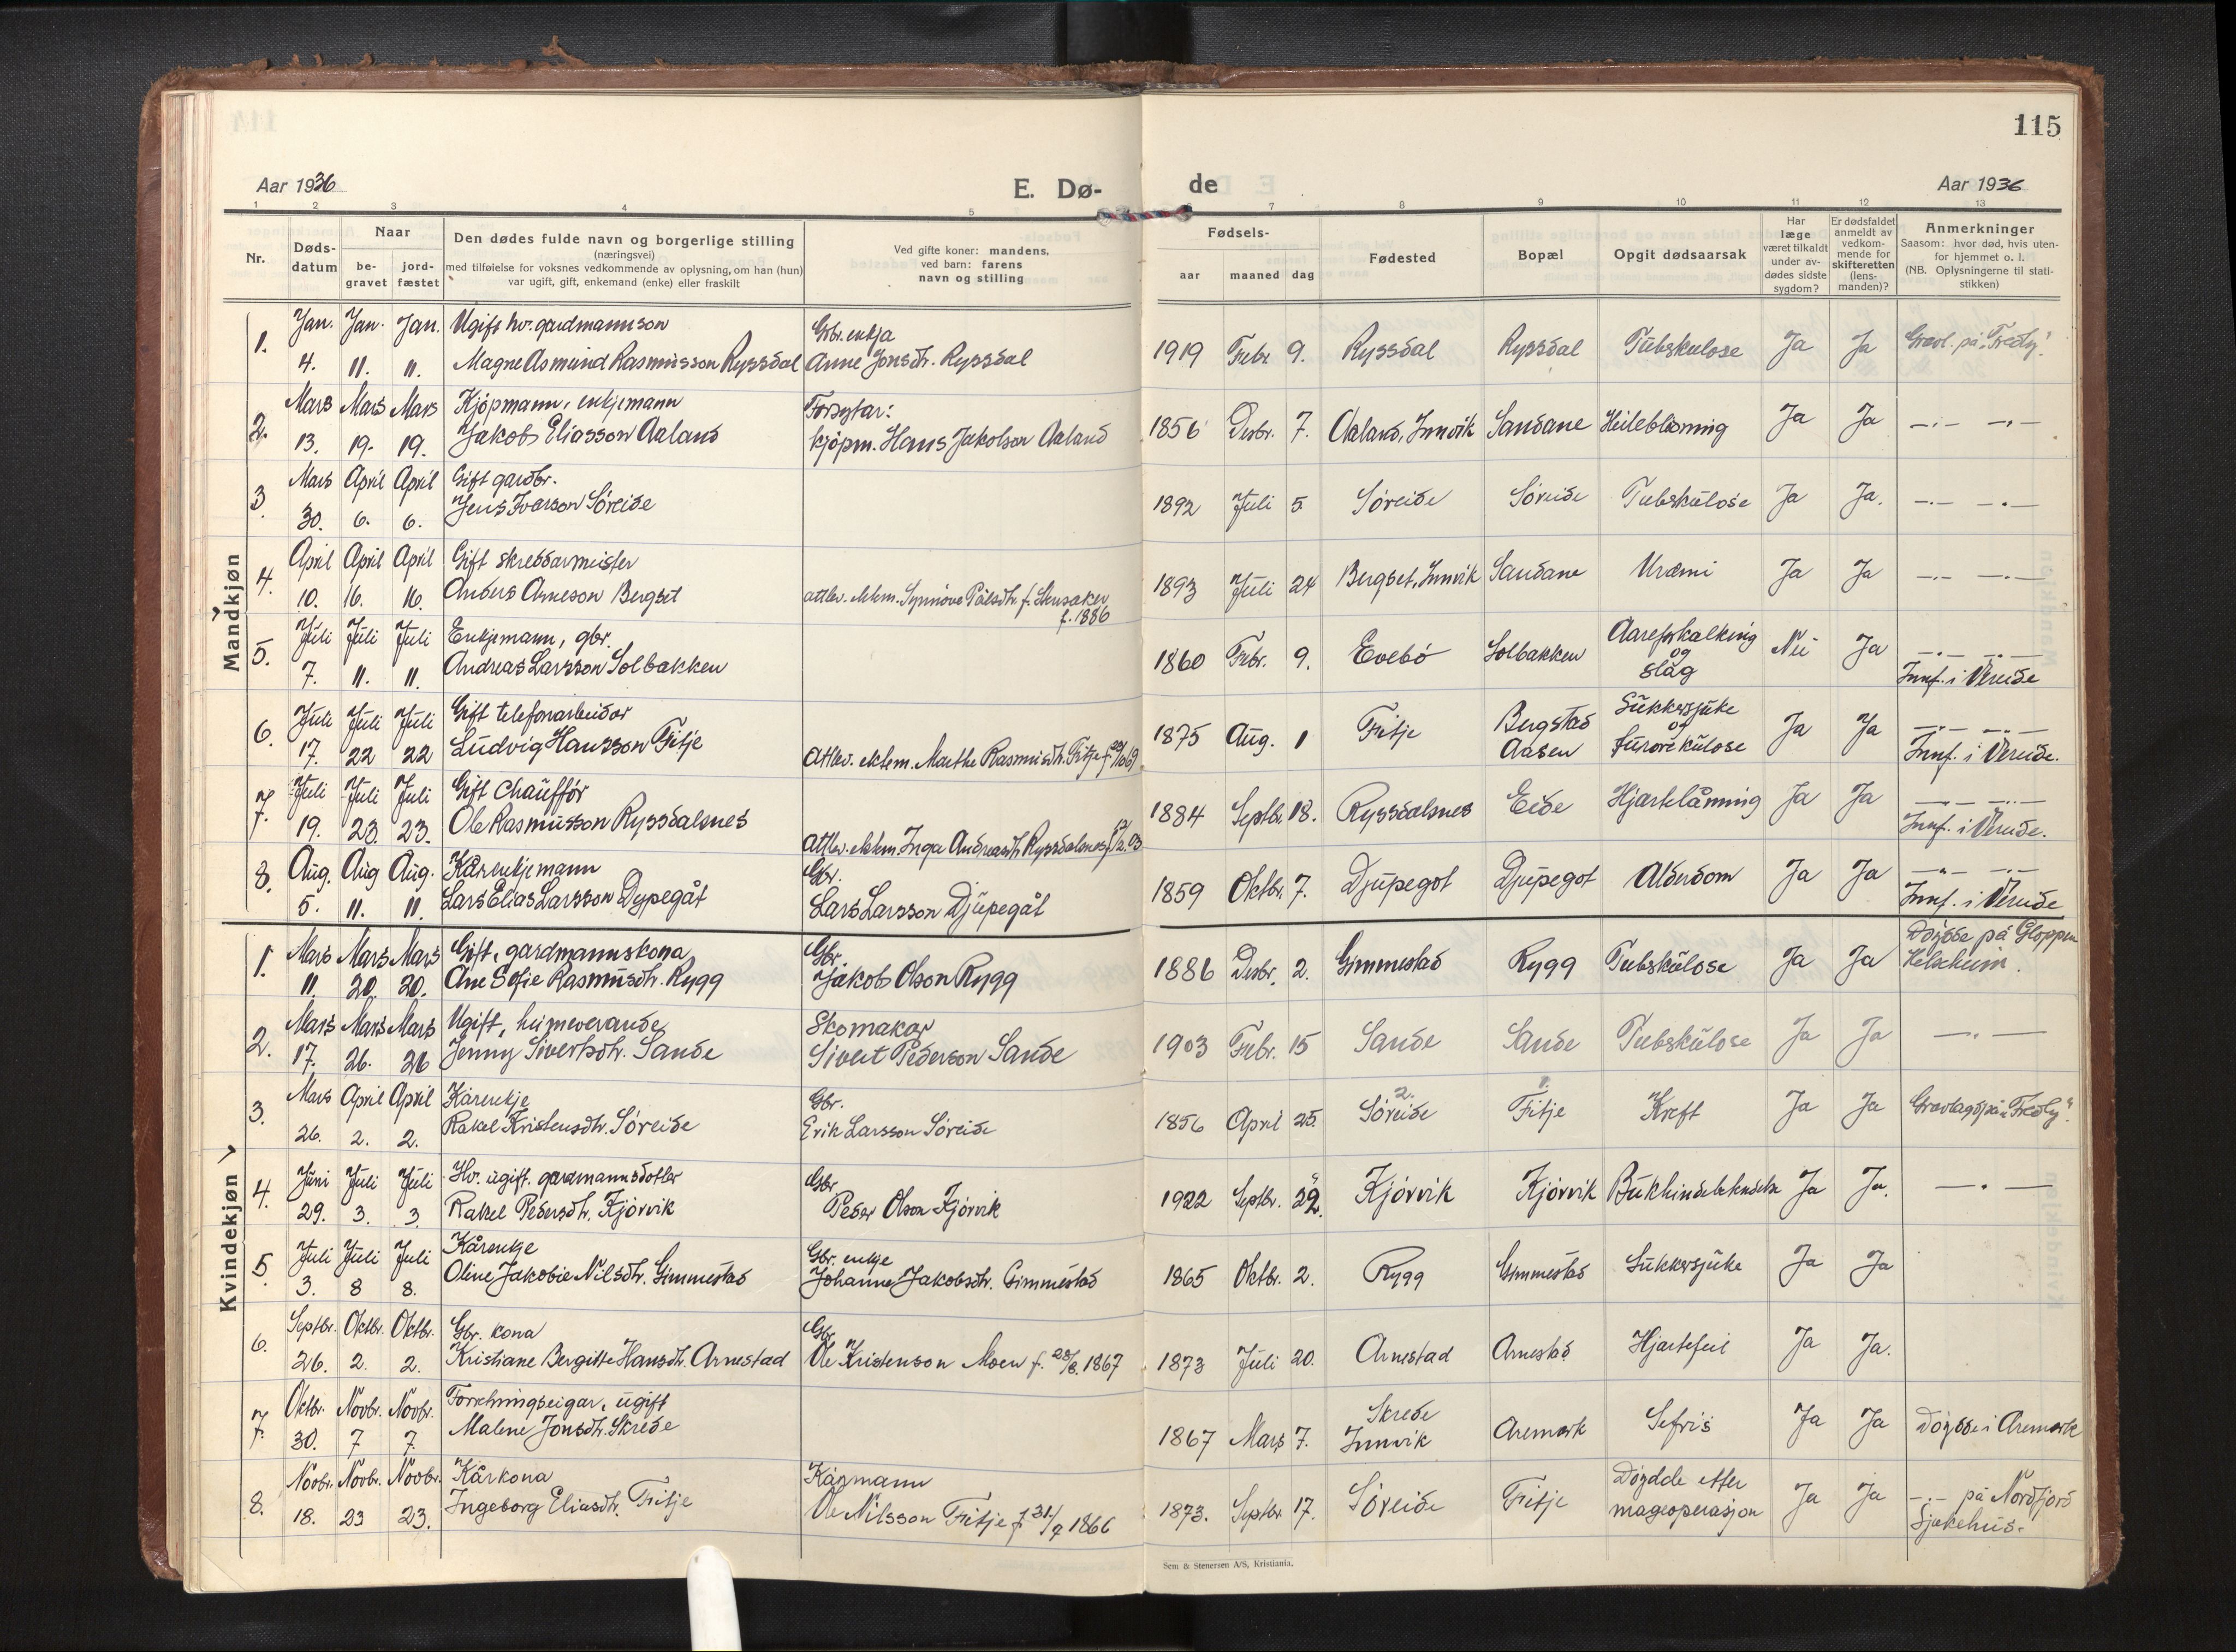 115
Aar 1936
E. Dø-
de
Aar 1936
1 2 3 4 5 6 7 8 9 10 11 12 13
Nr.
Døds-
datum
Naar
be-
gravet
jord-
fæstet
Den dødes fulde navn og borgerlige stilling
(næringsvei)
med tilføielse for voksnes vedkommende av oplysning, om han (hun)
var ugift, gift, enkemand (enke) eller fraskilt
Ved gifte koner: mandens,
ved barn: farens
navn og stilling
Fødsels-
aar maaned dag
Fødested
Bopæl
Opgit dødsaarsak
Har
læge
været tilkaldt
under av-
dødes sidste
sygdom?
Er dødsfaldet
anmeldt av
vedkom-
mende for
skifteretten
(lens-
manden)?
Anmerkninger
Saasom: hvor død, hvis uten-
for hjemmet o. l.
(NB. Oplysningerne til stati-
stikken)
Mandkjøn
1. Jan. Jan. Jan. Ugift hv. gardmannsson Gbr. enkja
4. 11. 11. Magne Asmund Rasmusson Ryssdal Anne Jonsdtr. Ryssdal 1919 Febr. 9. Ryssdal Ryssdal Tubskulose Ja Ja Gravl. på "Fredly".
2. Mars Mars Mars Kjøpmann, enkjemann Forsytar:
13. 19. 19. Jakob Eliasson Aaland kjøpm. Hans Jakobson Aaland 1856 Desbr. 7. Aaland, Innvik Sandane Heilebløming Ja Ja —.— —.—
3. Mars April April Gift gardbr.
30. 6. 6. Jens Ivarson Søreide 1892 Juli 5 Søreide Søreide Tubskulose Ja Ja. —.— —.—
4. April April April Gift skreddarmeister
10. 16. 16. Anders Arneson Bergset attlev. ektem. Synnøve Pålsdtr. f. 1886 1893 Juli 24 Bergset, Innvik Sandane Uræmi Ja Ja —.— —.—
5. Juli Juli Juli Enkjemann, gbr.
7. 11. 11. Andreas Larsson Solbakken 1860 Febr. 9. Evebø Solbakken Aareforkalking
og
slag Nei Ja —.— —.—
Innf. i Vereide
6. Juli Juli Juli Gift telefonarbeidar
17. 22 22 Ludvig Hansson Fitje Attlev. ektem. Marthe Rasmusdtr. Fitje 1875 Aug. 1 Fitje Bergstad
Aasen Sukkersjuke
og
furonkulose Ja Ja —.— —.—
Innf. i Vereide.
7. Juli Juli Juli Gift chauffør
19. 23. 23. Ole Rasmusson Ryssdalsnes Attlev. ektem. Inga Andreasdtr. Ryssdalsnes 1884 Septbr. 18. Ryssdalsnes Eide Hjartelåmning Ja Ja —.— —.—
Innf. i Vereide.
8. Aug. Aug Aug. Kårenkjemann Gbr.
5. 11. 11. Lars Elias Larsson Dypegåt Lars Larsson Djupegåt 1859 Oktbr. 7. Djupegot Djupegot Alderdom Ja Ja —.— —.—
Innf. i Vereide
Kvindekjøn
1. Mars Mars Mars Gift, gardmannskona Gbr.
11. 20. 20. Ane Sofie Rasmusdtr. Rygg Jakob Olson Rygg 1886 Desbr. 2. Gimmestad Rygg Tubskulose Ja Ja Døydde på Gloppen
Helseheim.
2. Mars Mars Mars Ugift, heimeverande Skomakar
17. 26. 26 Jenny Sivertsdtr. Sande Sivert Pederson Sande 1903 Febr. 15 Sande Sande Tubskulose Ja Ja —.—
3. Mars April April Kårenkje Gbr.
26. 2. 2. Rakel Kristensdtr. Søreide Erik Larsson Søreide 1856 April 25. Søreide Fitje Kreft Ja Ja Gravlagd på "Fredly".
4. Juni Juli Juli Hv. ugift. gardmannsdotter Gbr
29. 3. 3. Rakel Pedersdtr. Kjørvik Peder Olson Kjørvik 1922 Septbr. 22. Kjørvik Kjørvik Bukhindebetendelse Ja Ja. —.—
5. Juli Juli Juli Kårenkje Gbr. enkje
3. 8 8. Oline Jakobie Nilsdtr. Gimmestad Johanne Jakobsdtr. Gimmestad 1865 Oktbr. 2. Rygg Gimmestad Sukkersjuke Ja Ja
6. Septbr. Oktbr. Oktbr. Gbr. kona Gbr.
26. 2. 2. Kristiane Bergitte Hansdtr. Arnestad Ole Kristenson Moen f. 28/8. 1867 1873 Juli 20. Arnestad Arnestad Hjartefeil Ja Ja.
7. Oktbr. Novbr. Novbr. Forretningseigar, ugift
30. 7 7. Malene Jonsdtr. Skrede 1867 Mars 7. Skrede
Innvik Aremark Ja Ja Døydde i Aremark
8. Novbr. Novbr. Novbr. Kårkona Kårmann
18. 23 23. Ingeborg Eliasdtr. Fitje Ole Nilsson Fitje f 31/7 1866 1873. Septbr. 17. Søreide Fitje Døydde etter
mageoperasjon Ja Ja —.— på Nordfjord
Sjukehus.
Sem & Stenersen A/S, Kristiania.